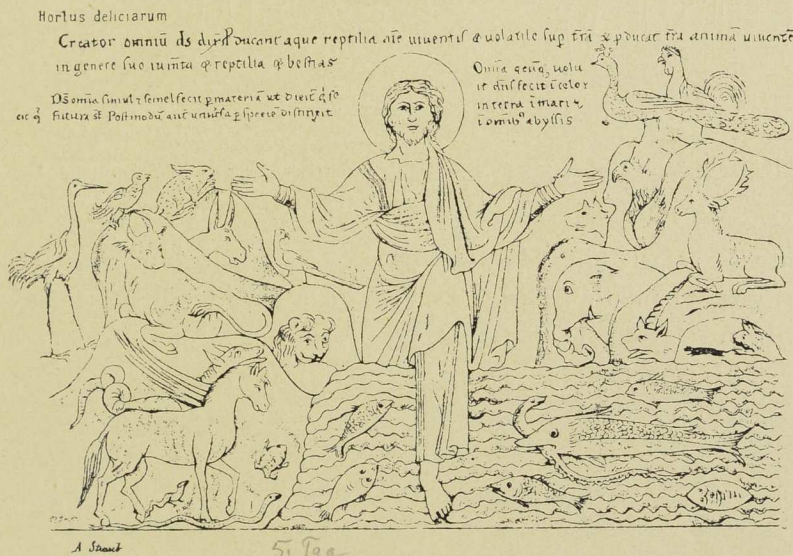 Hortus deliciarum
Creator omniū ds dix Ducant aque reptilia aīe viventis & volatile sup trā & pducat trā animā viventē
in genere suo iumta & reptilia & bestias
Ds omīa simul 7 semel fecit p materiā ut dicit
futura st Postmodū aut p speciē distinxit
Omīa volu
it dns fecit ī celo 7
in terra ī mari 7
ī omib' abyssis
A Straub
5. Tag